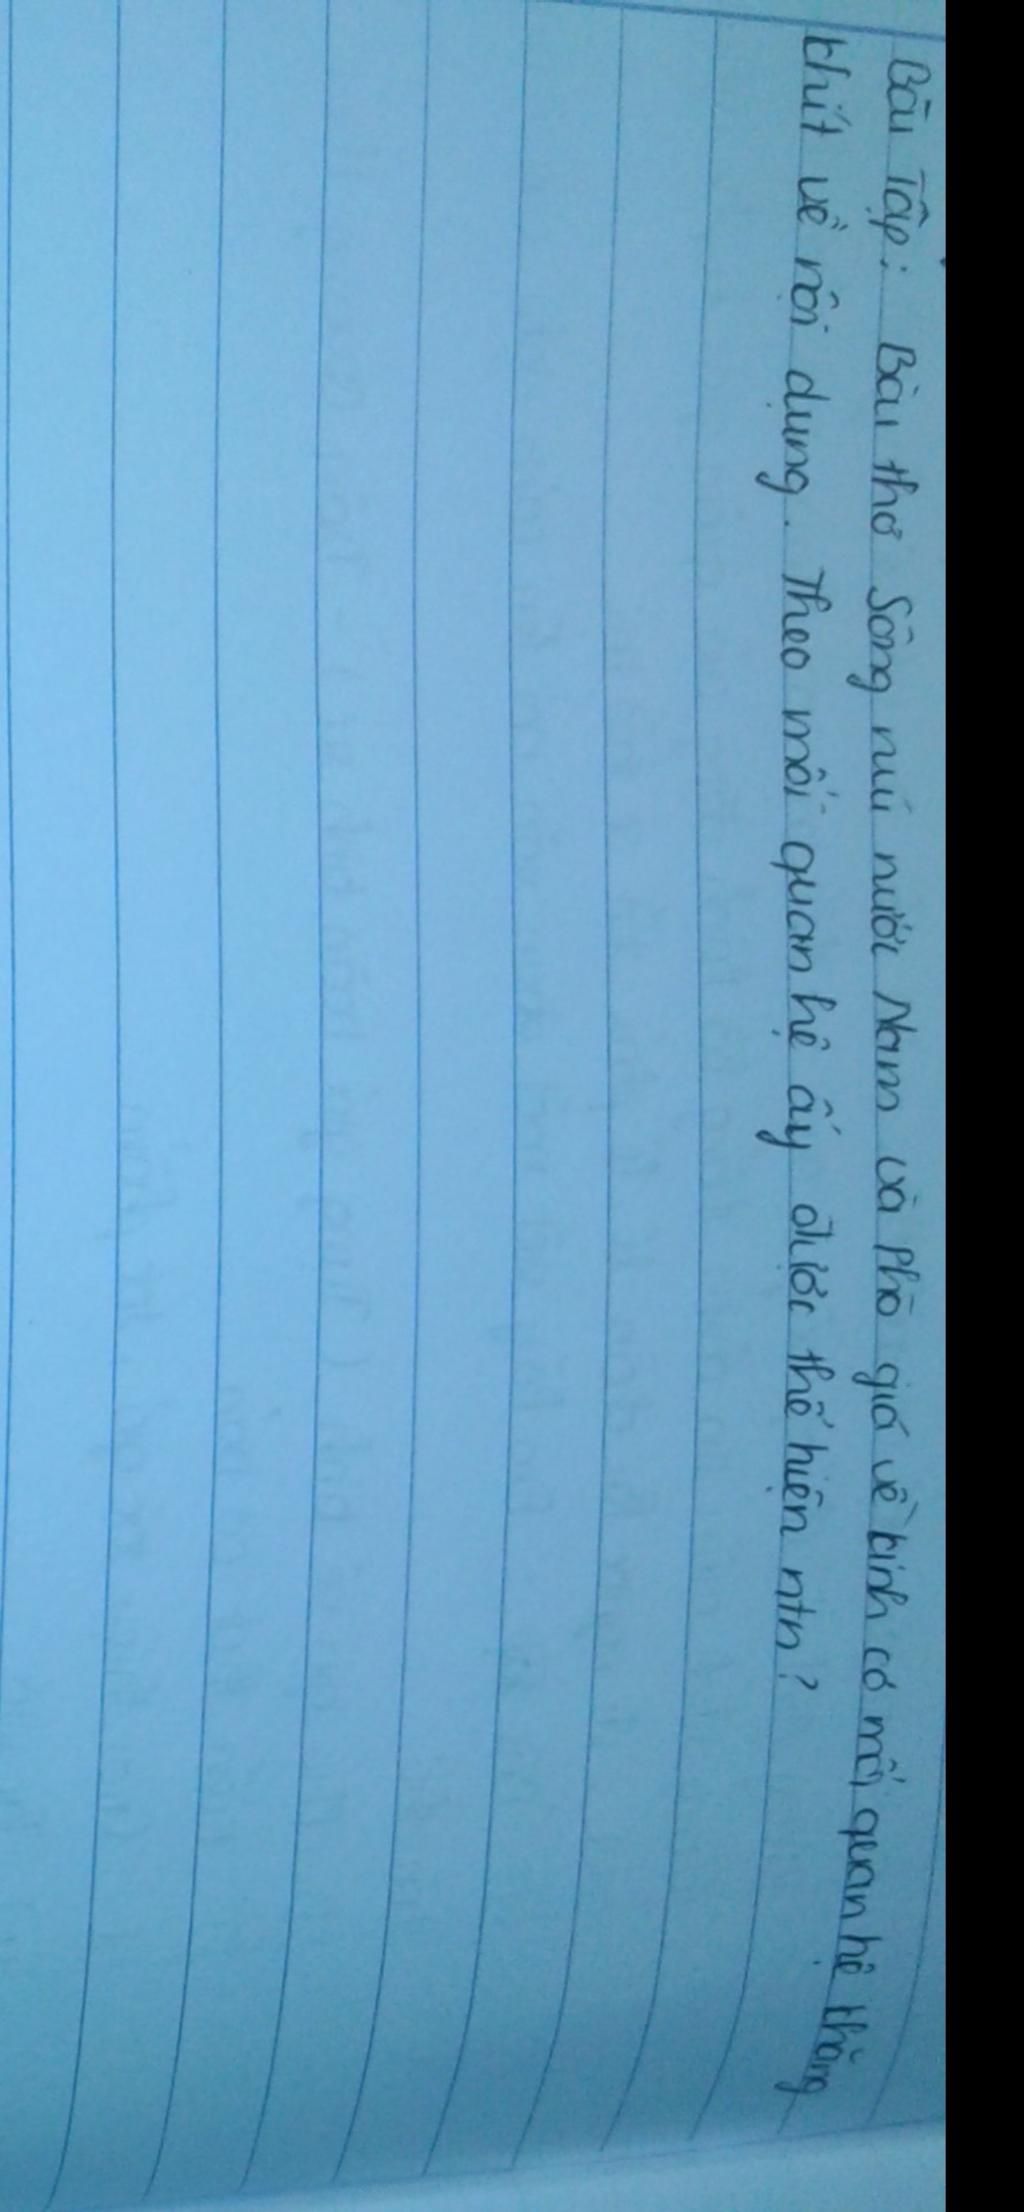 Bài Tập: Bài thơ Sông núi nước Nam và Phò giá về kinh có mối quan hệ thăng
khít về nội dụng. Theo mối quan hệ ấy được thể hiện ntn?